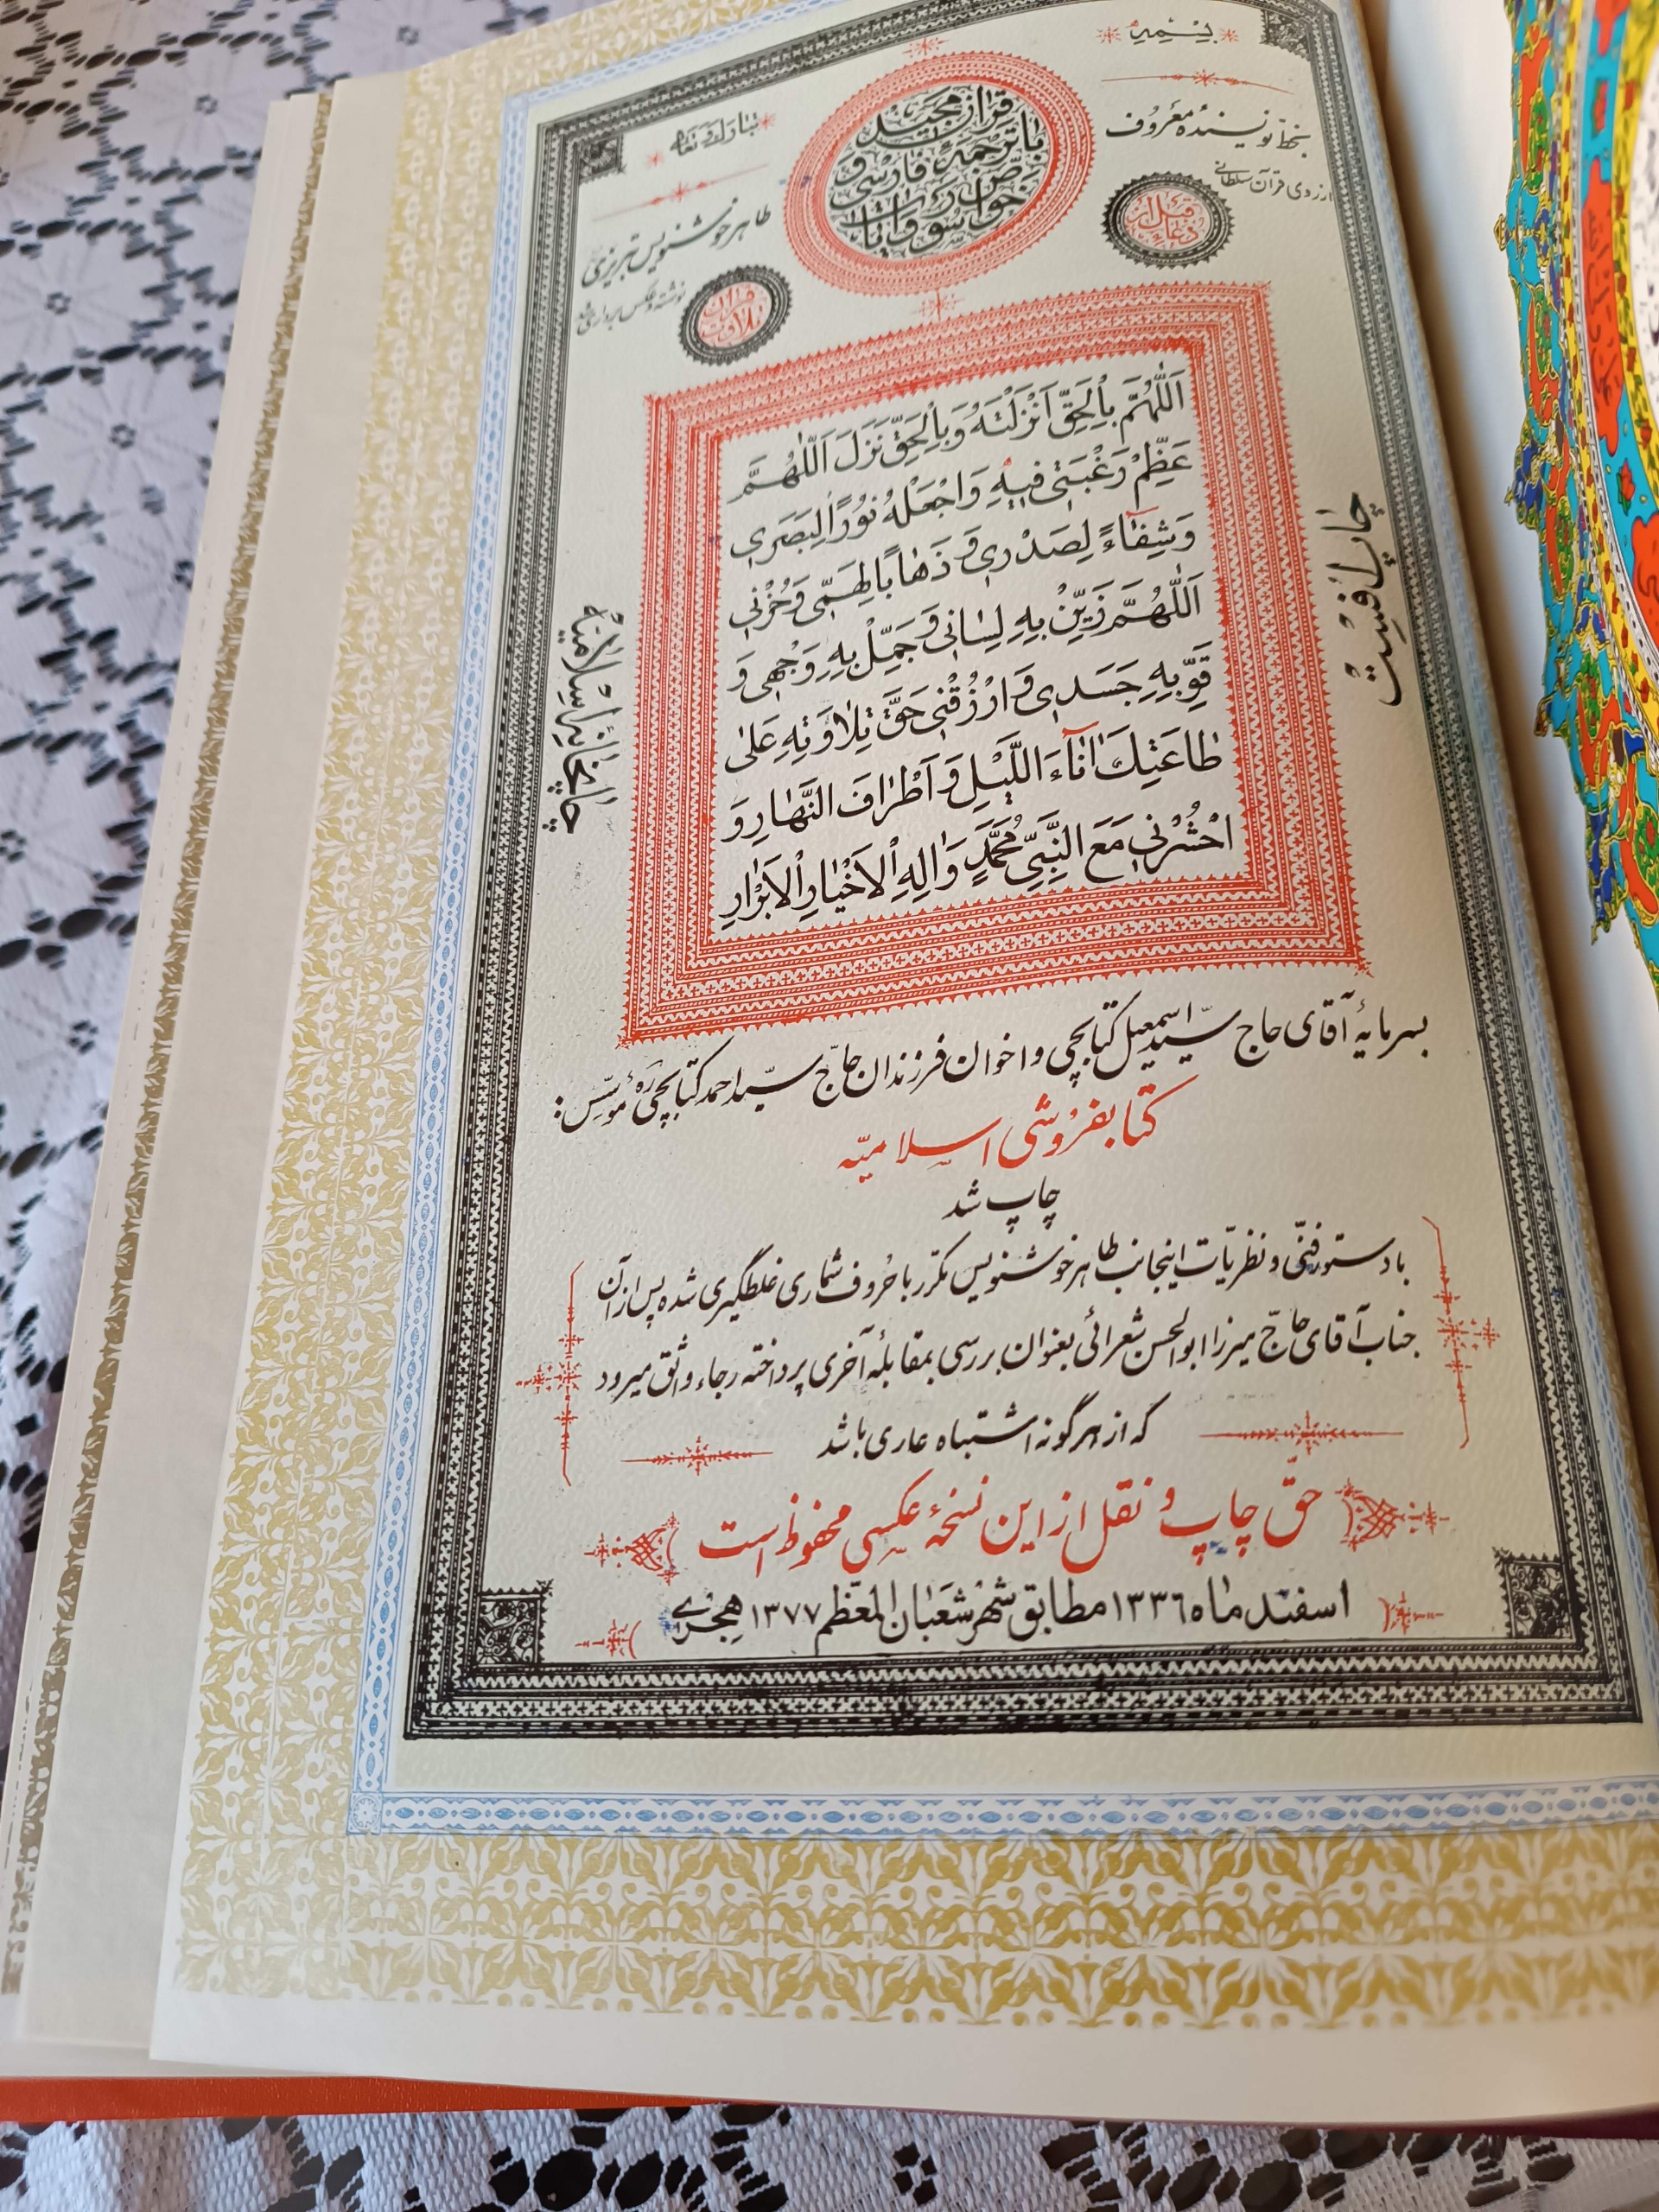 بسمه
تبارک و تعالی
قرآن مجید
با ترجمهٔ فارسی و
خواص
سور و آیات
بخط نویسندهٔ معروف
از روی قرآن سلطانی
طاهر خوشنویس تبریزی
نوشته و عکس برداری شد
قبل از
دعاء
قرآن
تلاوت
اَللّٰهُمَّ بِالْحَقِّ اَنْزَلْتَهُ وَبِالْحَقِّ نَزَلَ اَللّٰهُمَّ
عَظِّمْ رَغْبَتی فیهِ وَاجْعَلْهُ نُوْرًا لِبَصَری
وَشِفٰآءً لِصَدْری وَ ذَهٰابًا لِهَمّی وَحُزْنی
اَللّٰهُمَّ زَیِّنْ بِهِ لِسٰانی وَ جَمِّلْ بِهِ وَجْهی وَ
قَوِّ بِهِ جَسَدی وَ ارْزُقْنی حَقَّ تِلٰاوَتِهِ عَلیٰ
طٰاعَتِكَ اٰنٰآءَ اللَّیْلِ وَ اَطْرٰافَ النَّهٰارِ وَ
احْشُرْنی مَعَ النَّبِیِّ مُحَمَّدٍ وَاٰلِهِ الْاَخْیٰارِ الْاَبْرٰارِ
چاپ افست
چاپخانهٔ اسلامیّه
بسرمایهٔ آقای حاج سیّد اسمعیل کتابچی و اخوان فرزندان حاجّ سیّد احمد کتابچی ره مؤسّس:
کتابفروشی اسلامیّه
چاپ شد
با دستور فنّی و نظریّات اینجانب طاهر خوشنویس مکرّر با حروف شماری غلطگیری شده پس از آن
جناب آقای حاجّ میرزا ابوالحسن شعرائی بعنوان بررسی بمقابلهٔ آخری پرداخته رجاء واثق میرود
که از هر گونه اشتباه عاری باشد
حقّ چاپ و نقل از این نسخهٔ عکسی محفوظ است
اسفند ماه ۱۳۳۶ مطابق شهر شعبان المعظّم ۱۳۷۷ هجری